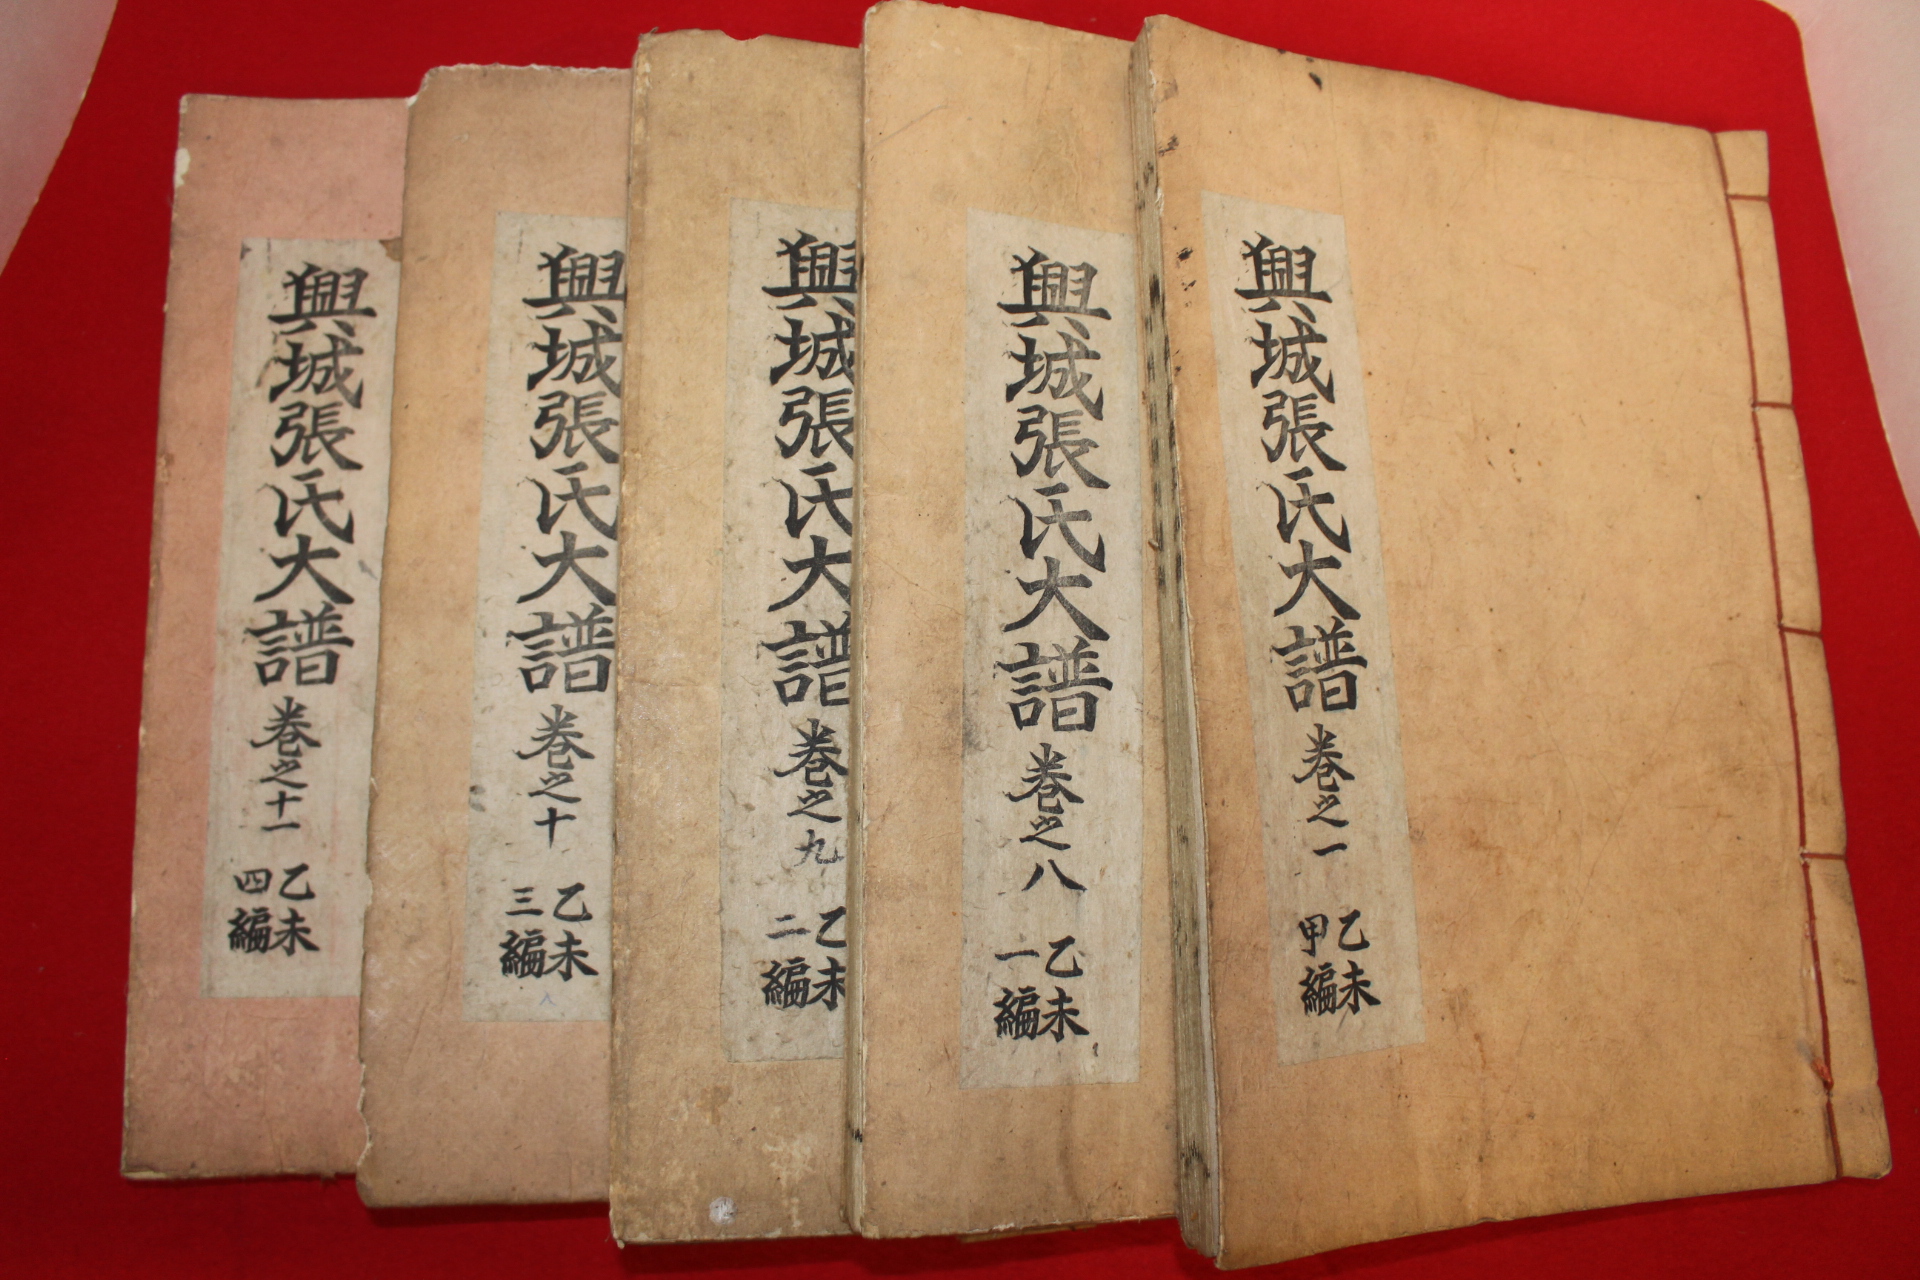 興城張氏大譜 卷之一
乙未
甲編
興城張氏大譜 卷之八
乙未
一編
興城張氏大譜 卷之九
乙未
二編
興城張氏大譜 卷之十
乙未
三編
興城張氏大譜 卷之十一
乙未
四編